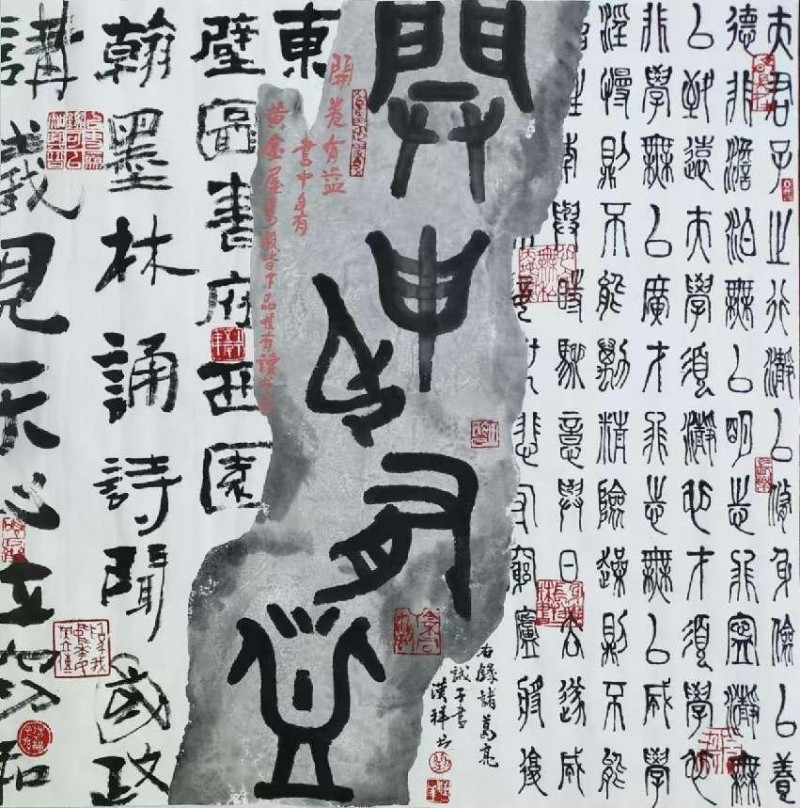 夫君子之行瀞以修身儉以養
德非澹泊無以明志非寧瀞無
以致遠夫學須瀞也才須學也
非學無以廣才非志無以成學
淫慢則不能勵精險躁則不能
性年與時馳意與日去遂成
接世悲守窮廬將復
右錄諸葛亮
誡子書
漢祥书
開卷有益
開卷有益
書中自有
黃金屋萬般皆下品惟有讀書高
東
壁圖書府西園
翰墨林誦詩聞國政
講議見天心位竊和